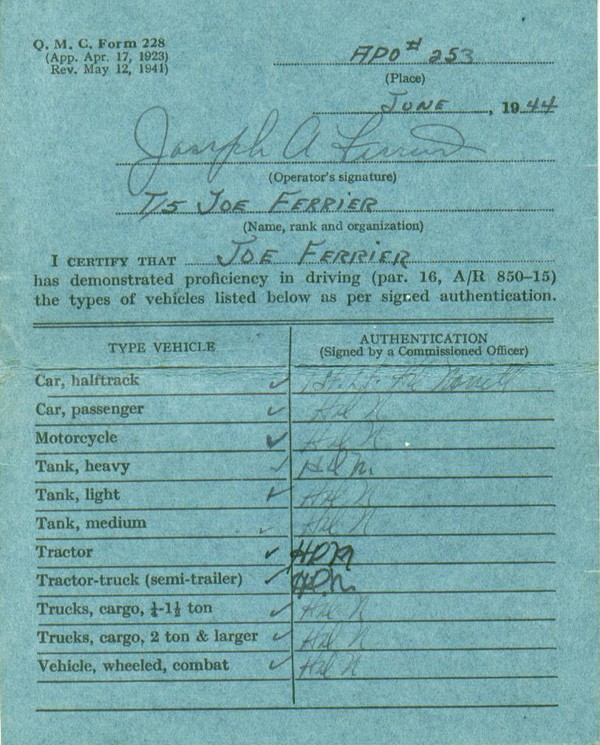 Q. M. C. Form 228
(App. Apr. 17, 1923)
Rev. May 12, 1941)
APO # 253
(Place)
JUNE, 1944
Joseph A Ferrier
(Operator's signature)
T/5 JOE FERRIER
(Name, rank and organization)
I CERTIFY THAT JOE FERRIER
has demonstrated proficiency in driving (par. 16, A/R 850-15)
the types of vehicles listed below as per signed authentication.
TYPE VEHICLE AUTHENTICATION
(Signed by a Commissioned Officer)
Car, halftrack ✓ 1st Lt.
Car, passenger ✓ Hal N
Motorcycle ✓ Hal N
Tank, heavy ✓
Tank, light ✓ Hal N
Tank, medium ✓ Hal N
Tractor ✓
Tractor-truck (semi-trailer) ✓
Trucks, cargo, ¼-1½ ton ✓ Hal N
Trucks, cargo, 2 ton & larger ✓ Hal N
Vehicle, wheeled, combat ✓ Hal N